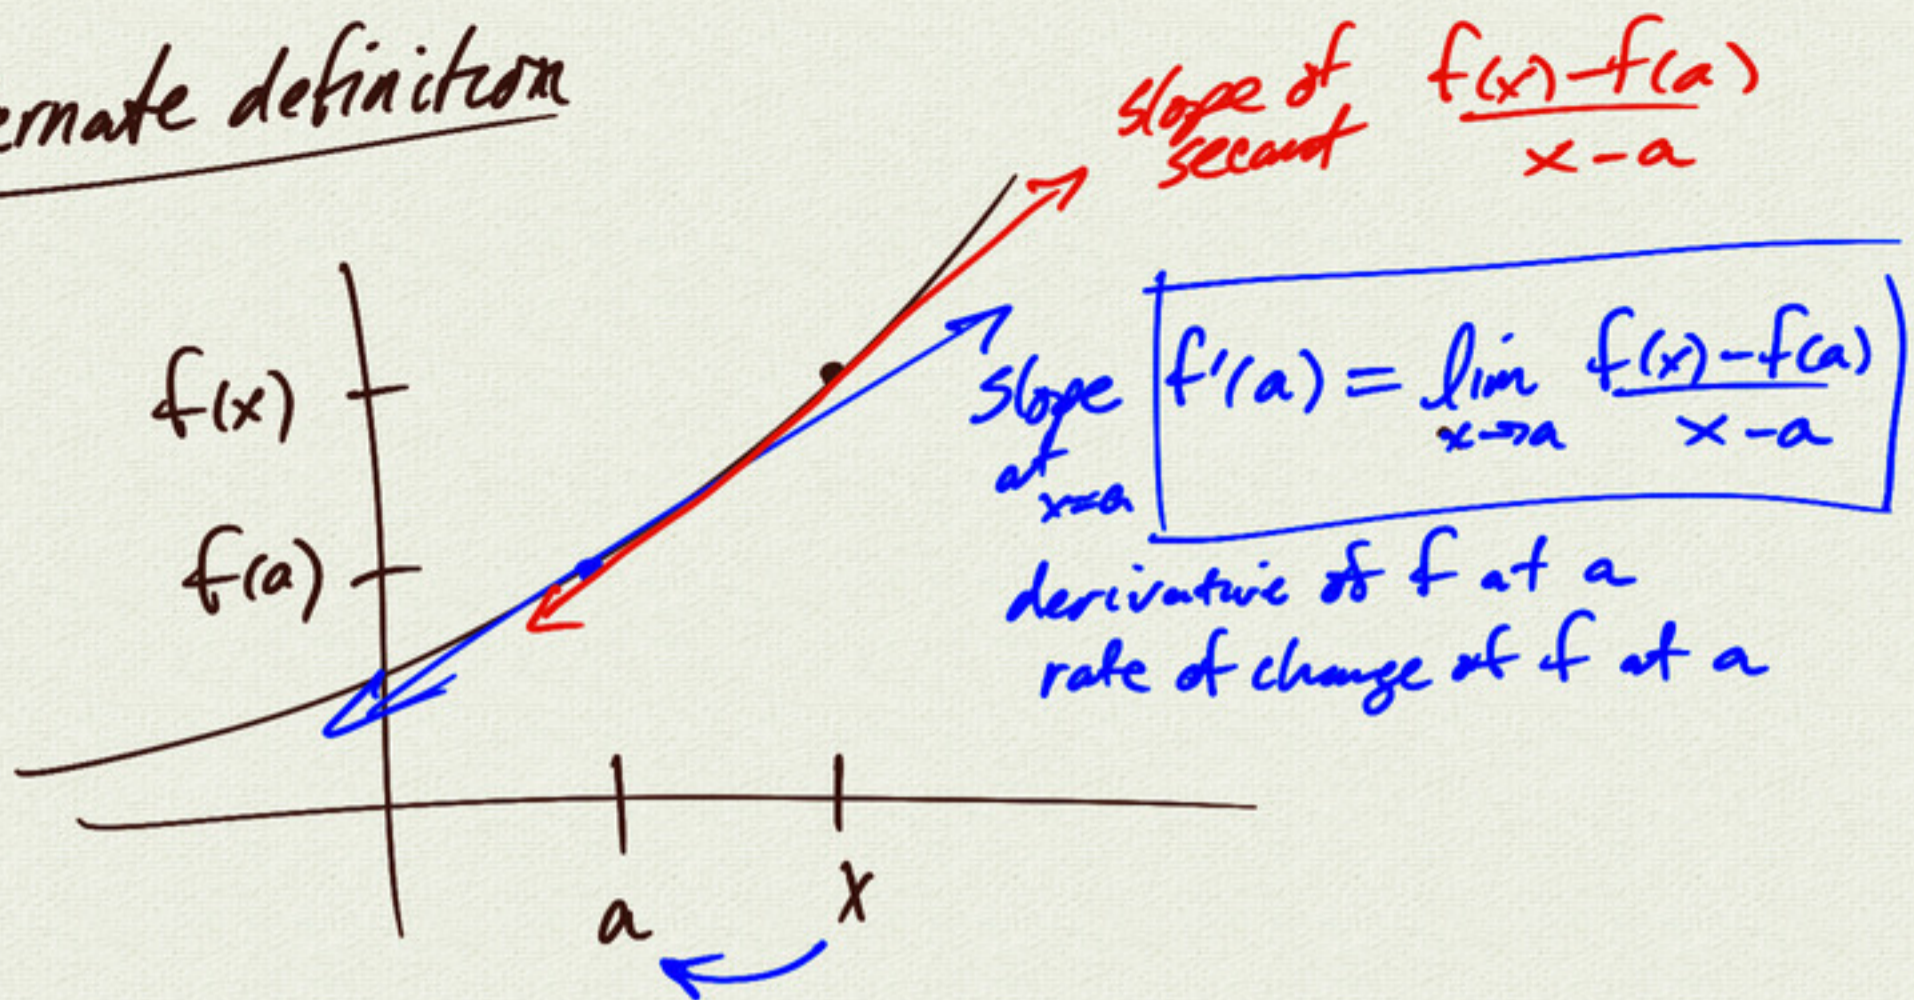 ernate definition
slope of
secant
f(x)-f(a)
x-a
f(x)
f(a)
slope
at
x=a
f'(a) = lim f(x)-f(a)
x→a x-a
derivative of f at a
rate of change of f at a
a x